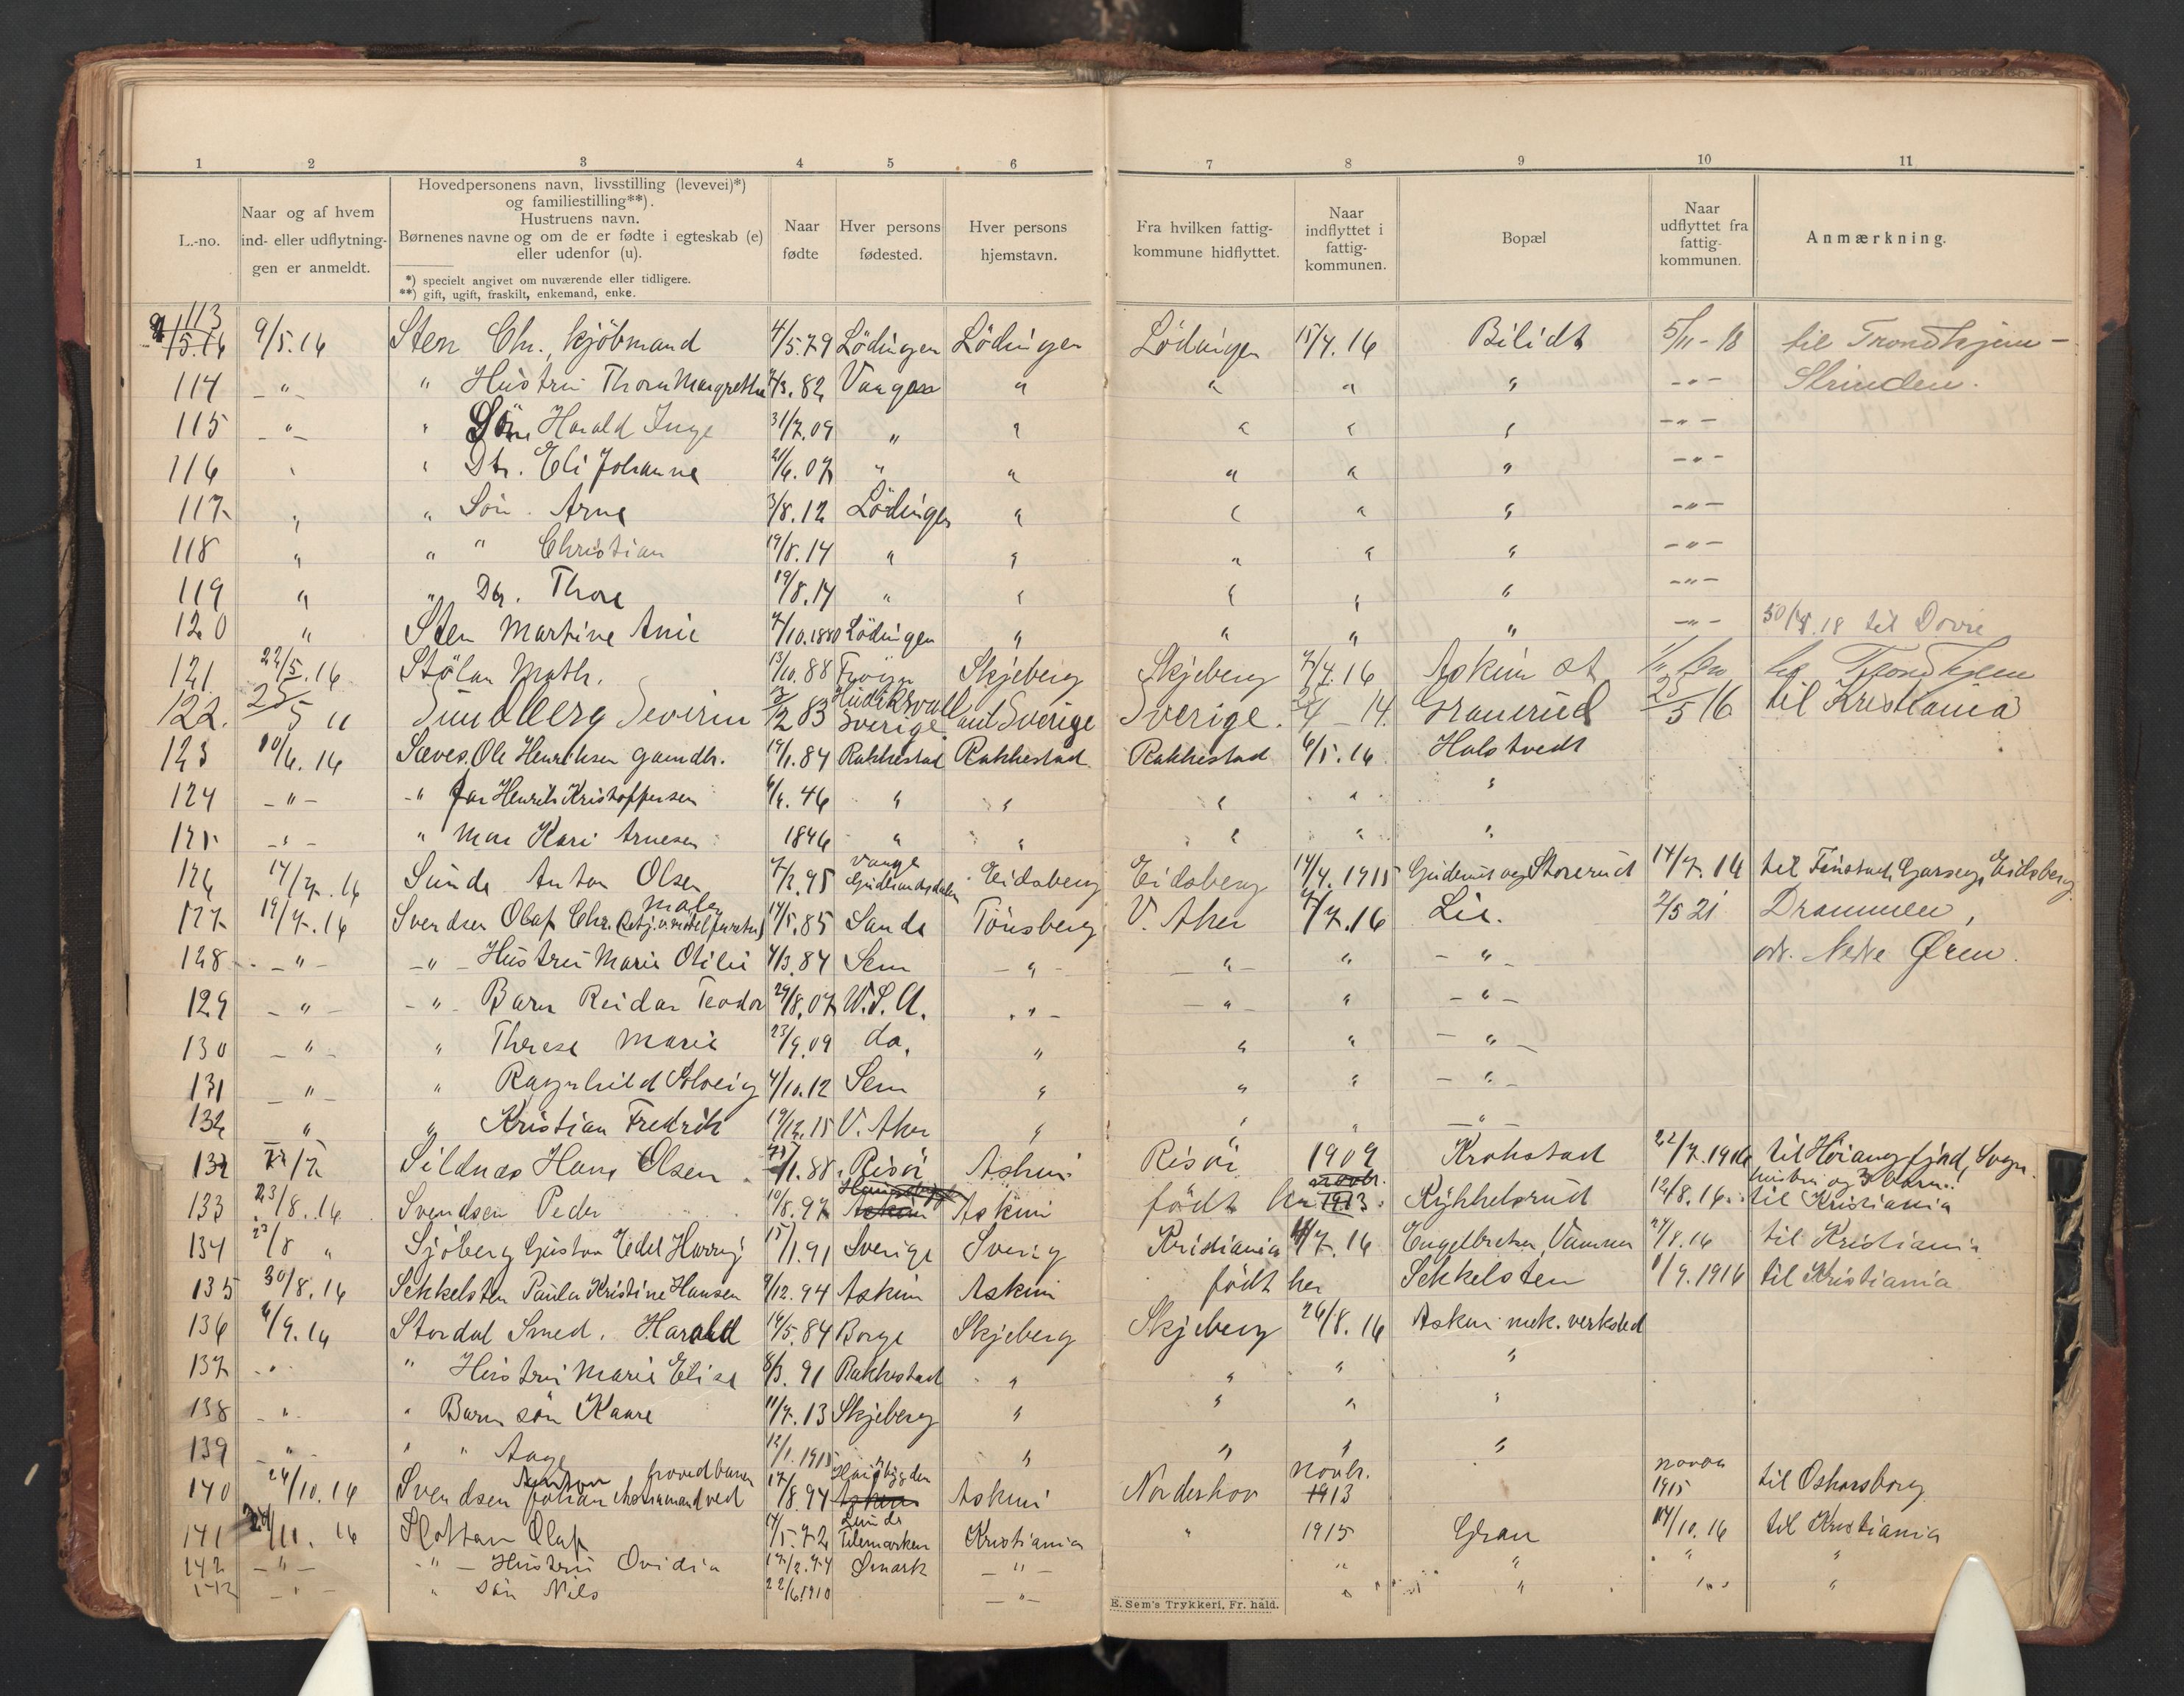 1 2 3 4 5 6 7 8 9 10 11
L.-no.
Naar og af hvem
ind- eller udflytning-
gen er anmeldt.
Hovedpersonens navn, livsstilling (levevei)*)
og familiestilling**).
Hustruens navn.
Børnenes navne og om de er fødte i egteskab (e)
eller udenfor (u).
*) specielt angivet om nuværende eller tidligere.
**) gift, ugift, fraskilt, enkemand, enke.
Naar
fødte
Hver persons
fødested.
Hver persons
hjemstavn.
Fra hvilken fattig-
kommune hidflyttet.
Naar
indflyttet i
fattig-
kommunen.
Bopæl
Naar
udflyttet fra
fattig-
kommunen.
Anmærkning.
113 9/5.16 Sten Chr. kjöbmand 4/5.79 Lödingen Lödingen Lödingen 15/4.16 Bilidt 5/11-18 til Trondhjem -
114 -"- " Hustru Thora Margrethe /3.82 Vangen " " " " -"- Strinden.
115 -"- " Sön Harald Inge 31/7.09 " " " " " -"-
116 " " Dtr. Eli Johanne 21/6.07 " " " " " -"-
117 " " Sön. Arne 3/8.12 Lödingen " " " " -"-
118 " " " Christian 19/8.14 " " " " " -"-
119 " " Dtr. Thora 19/8.14 " " " " " -"-
120 " Sten Martine Anie /10.1880 Lödingen " " " " -"- 30/8.18 til Dovre
121 22/5.16 Stölan Math. 13/10.88 Skjeberg Skjeberg /4.16 Askim st Trondhjem
122. 25/5 " Sundberg Severin /2 83 Hudiksvall Sverige Sverige Sverige. - 14. Granerud 25/5 16 til Kristiania
123 10/6.16 Sæves, Ole Henriksen gaardbr. 19/1.84 Rakkestad Rakkestad Rakkestad 6/5.16 Holstvedt
124 -"- -" Far Henrik Kristoffersen 6/6.46 " " " " "
125 -"- " Mor Kari Arnesen 1846 " " " " "
126 14/7.16 Sunde Anton Olsen 7/2.95 Vaage Gudbrandsdalen Eidsberg Eidsberg 14/4.1915 Guderud og Storerud 14/7.16 til Finstad, Eidsberg
127 19/7.16 Svendsen Olaf Chr. maler 14/5.85 Sande Tönsberg V. Aker /7.16 Lie. 2/5 21 Drammen,
128 -"- -"- Hustru Marie Otilie 4/3.84 Sem -"- -"- " -"- Nedre Øren.
129 -"- -"- Barn Reidar Teodor 29/8.07 U.S.A. -"- -"- " -"-
130 -"- " Therese Marie 23/9.09 do. " " " -"-
131 -"- " Ragnhild Solveig 4/10.12 Sem " " " -"-
132 " " Kristian Fredrik 19/12.15 V. Aker " " " -"-
132 22/7 Sildnes Hans Olsen /1.88 Risör Askim Risör 1909 Krokstad 22/7.1916 til Höiangfjord, Sogn.
hustru og 3 barn.
133 23/8.16 Svendsen Peder 10/8.97 Askim Askim født her 1913 Kykkelsrud 12/8.16 til Kristiania
134 23/8 " Sjöberg Gustav Edel Harry 15/1.91 Sverige Sverig Kristiania /7.16 Engelbretsen, Vammen 27/8.16 til Kristiania
135 30/8.16 Sekkelsten Paula Kristine Hansen 9/12.94 Askim Askim født her Sekkelsten 1/9.1916 til Kristiania
136 6/9.16 Stordal Smed. Harald 14/5.84 Borge Skjeberg Skjeberg 26/8.16 Askim mek. verksted
137 -"- " Hustru Marie Elise 8/3.91 Rakkestad " " " "
138 -"- " Barn sön Kaare 11/7.13 Skjeberg " " " "
139 -"- " " Aage 12/1.1915 " " " " "
140 24/10.16 Svendsen Johan Anton 17/8.94 Askim Askim Norderhov novbr. 1913 novbr 1915 til Oskarsborg
141 24/11.16 Slottan Olaf 17/5.72 Lunde Telemarken Kristiania " 1915 Gran 14/10.16 til Kristiania
142 -"- -"- Hustru Ovidia /2.74 Ømark -"- " " " "
143 -"- " Sön Nils 22/6.1910 -"- " " " "
E. Sem's Trykkeri, Fr. hald.